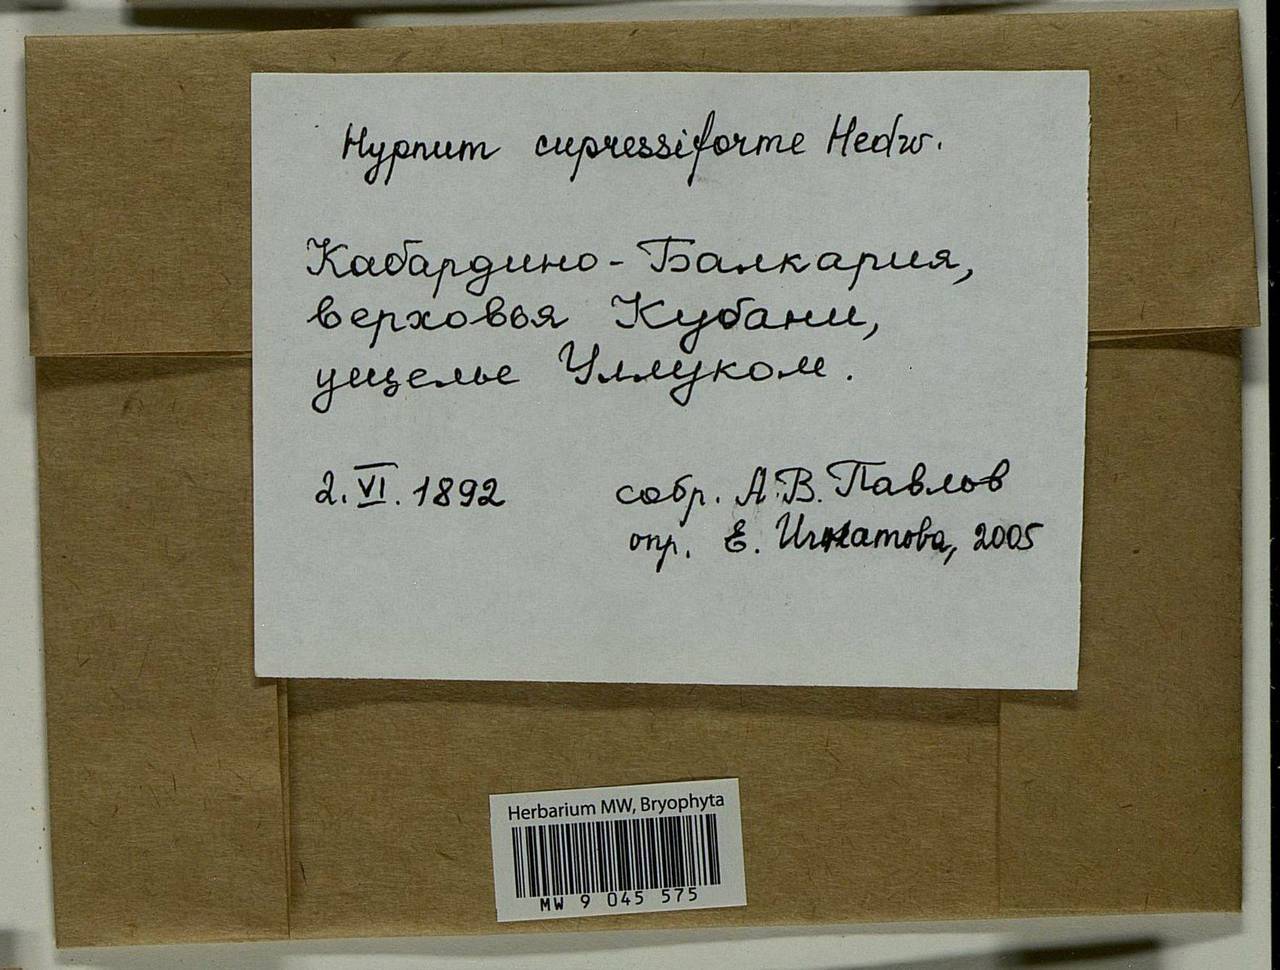 Hypnum cupressiforme Hedw.
Кабардино-Балкария,
верховья Кубани,
ущелье Уллуком.
2.VI.1892 собр. А.В.Павлов
опр. Е. Игнатова, 2005
Herbarium MW, Bryophyta
MW 9 045 575